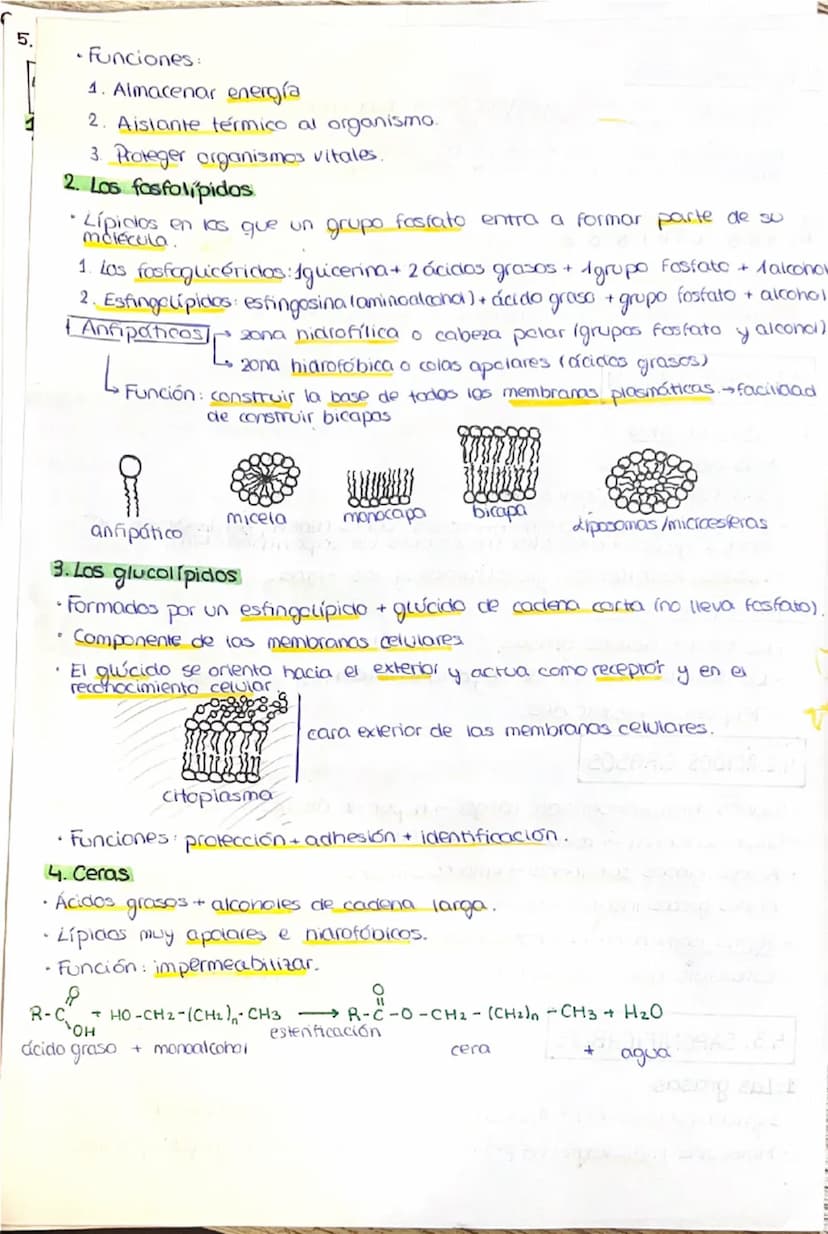 5.
· Funciones:
1. Almacenar energía
2. Aislante térmico al organismo.
3. Proteger organismos vitales.
2. Los fosfolípidos
· Lípidos en los que un grupo fosfato entra a formar parte de su
molécula.
1. Los fosfoglicéridos: 1glicerina + 2 ácidos grasos + 1grupo Fosfato + 1alcohol
2. Esfingolípidos: esfingosina (aminoalcohol) + ácido graso + grupo fosfato + alcohol
Anfipáticos → zona hidrofílica o cabeza polar (grupos fosfato y alcohol)
↳ zona hidrofóbica o colas apolares (ácidos grasos)
↳ Función: construir la base de todas las membranas plasmáticas → facilidad
de construir bicapas
anfipático micela monocapa bicapa liposomas/microesferas
3. Los glucolípidos
· Formados por un esfingolípido + glúcido de cadena corta (no lleva fosfato).
· Componente de las membranas celulares
· El glúcido se orienta hacia el exterior y actua como receptor y en el
reconocimiento celular.
cara exterior de las membranas celulares.
citoplasma
· Funciones: protección + adhesión + identificación.
4. Ceras
· Ácidos grasos + alcoholes de cadena larga.
· Lípidos muy apolares e hidrofóbicos.
· Función: impermeabilizar.
O O
R-C + HO-CH2-(CH2)n-CH3 → R-C-O-CH2-(CH2)n-CH3 + H2O
OH esterificación
ácido graso + monoalcohol cera + agua